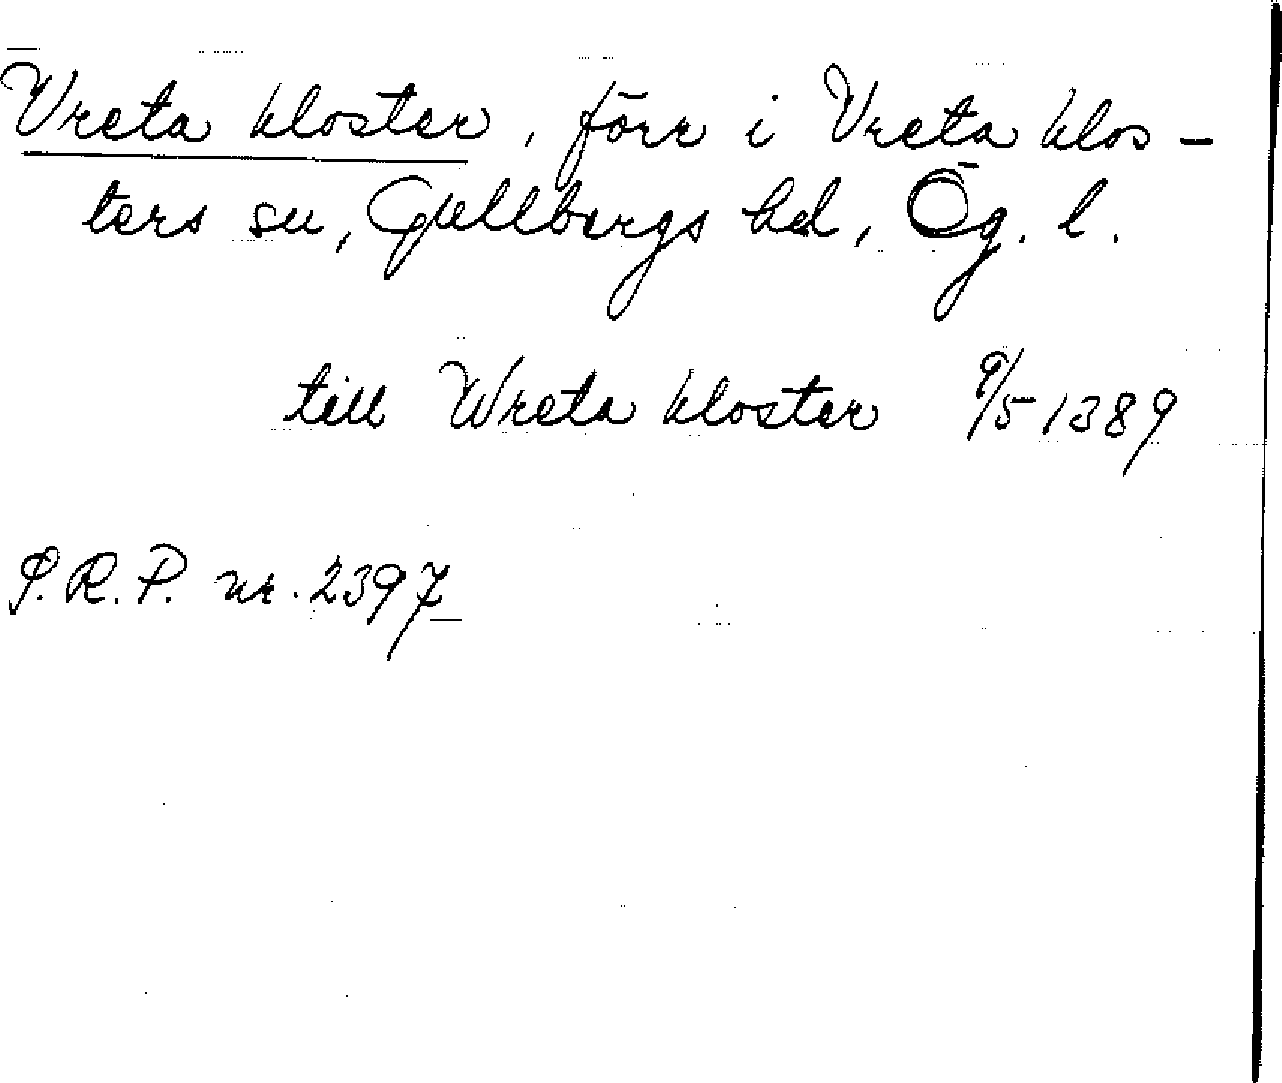 Vreta kloster, förr i Vreta klos-
ters sn, Gullbergs hd, Ög. l.
till Wreta kloster 9/5 1389
S.R.P. nr. 2397